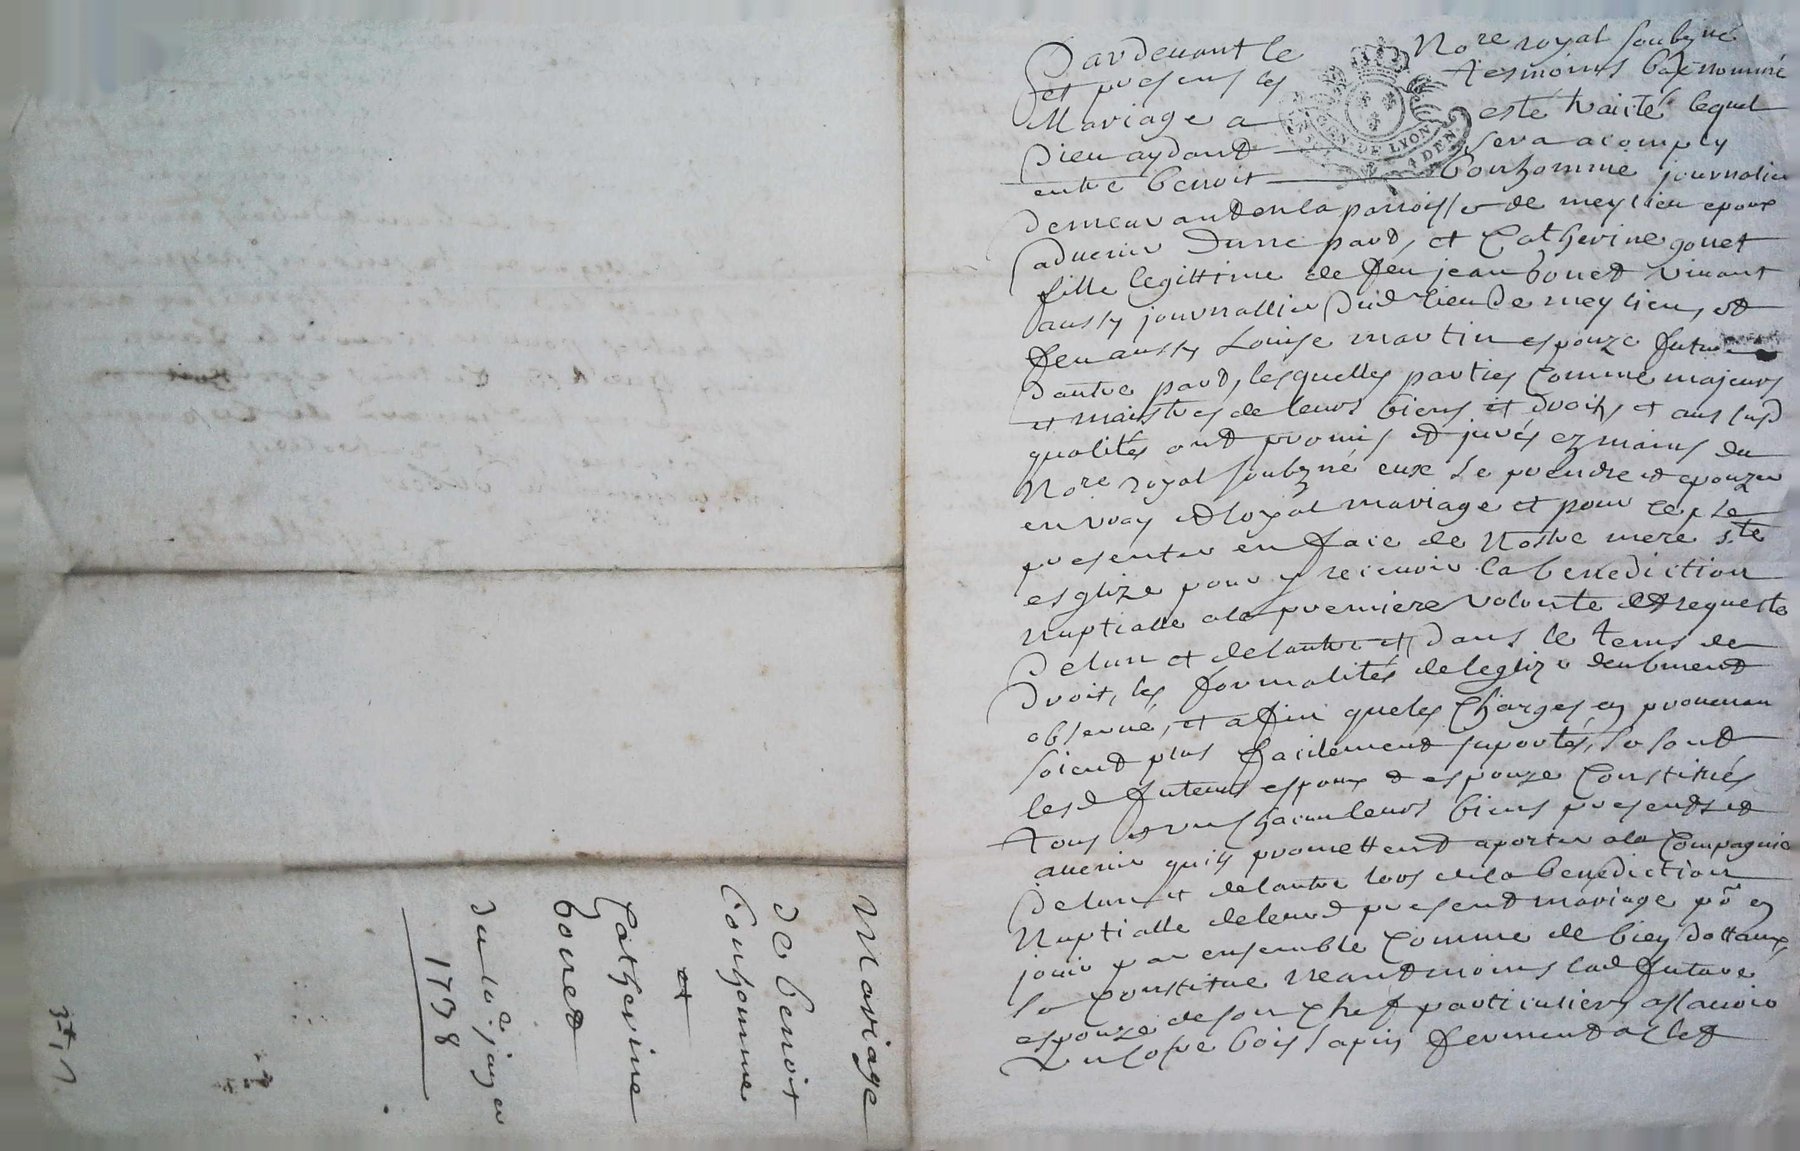 Mariage
de benoit
bonhomme
et
Catherine
gouet
du 10e janver
1738
Pardevant le Nore royal soubzné
et presens les tesmoins bas nommé
Mariage a esté traitté lequel
Dieu aydant sera acomply
GEN DE LYON
4 DEN
entre benoit bonhomme journalier
demeurant en la parroisse de meylieu epoux
advenir dune part, et Catherine gouet
fille legittime de feu jean gouet vivant
aussy journallier dud lieu de meylieu, et
feu aussy Louise martin espouze future
dautre part, lesquelles parties comme majeurs
et maistres de leurs biens et droits et aus susd
qualités ont promis et jurés ez mains du
Nore royal soubzné eux se prendre et epouzer
en vray et loyal mariage et pour ce se
presenter en face de Nostre mere ste
esglize pour y recevoir la benediction
Nuptialle a la premiere volonte et requeste
de lun et de lautre et dans le tems de
droit, les formalités de leglize deubment
observé, et affin que les charges en provenan
soient plus facilement suportés, se sont
lesd futeurs espoux et espouze Constitués
tous et un chacun leurs biens presents et
avenir quils promettent aporter a la Compagnie
de lun et de lautre lors de la benediction
Nuptialle de leurd present mariage pr en
jouir par ensemble Comme de bien dottaux,
se Constitue neantmoins lad future
espouze de son chef particuliers assavoir
Un cofre bois sapin fermant a clef